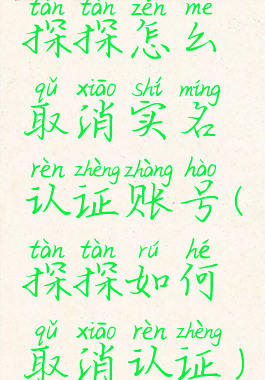 tàn tàn zěn me
探探怎么
qǔ xiāo shí míng
取消实名
rèn zhèng zhàng hào
认证账号(
tàn tàn rú hé
探探如何
qǔ xiāo rèn zhèng
取消认证)